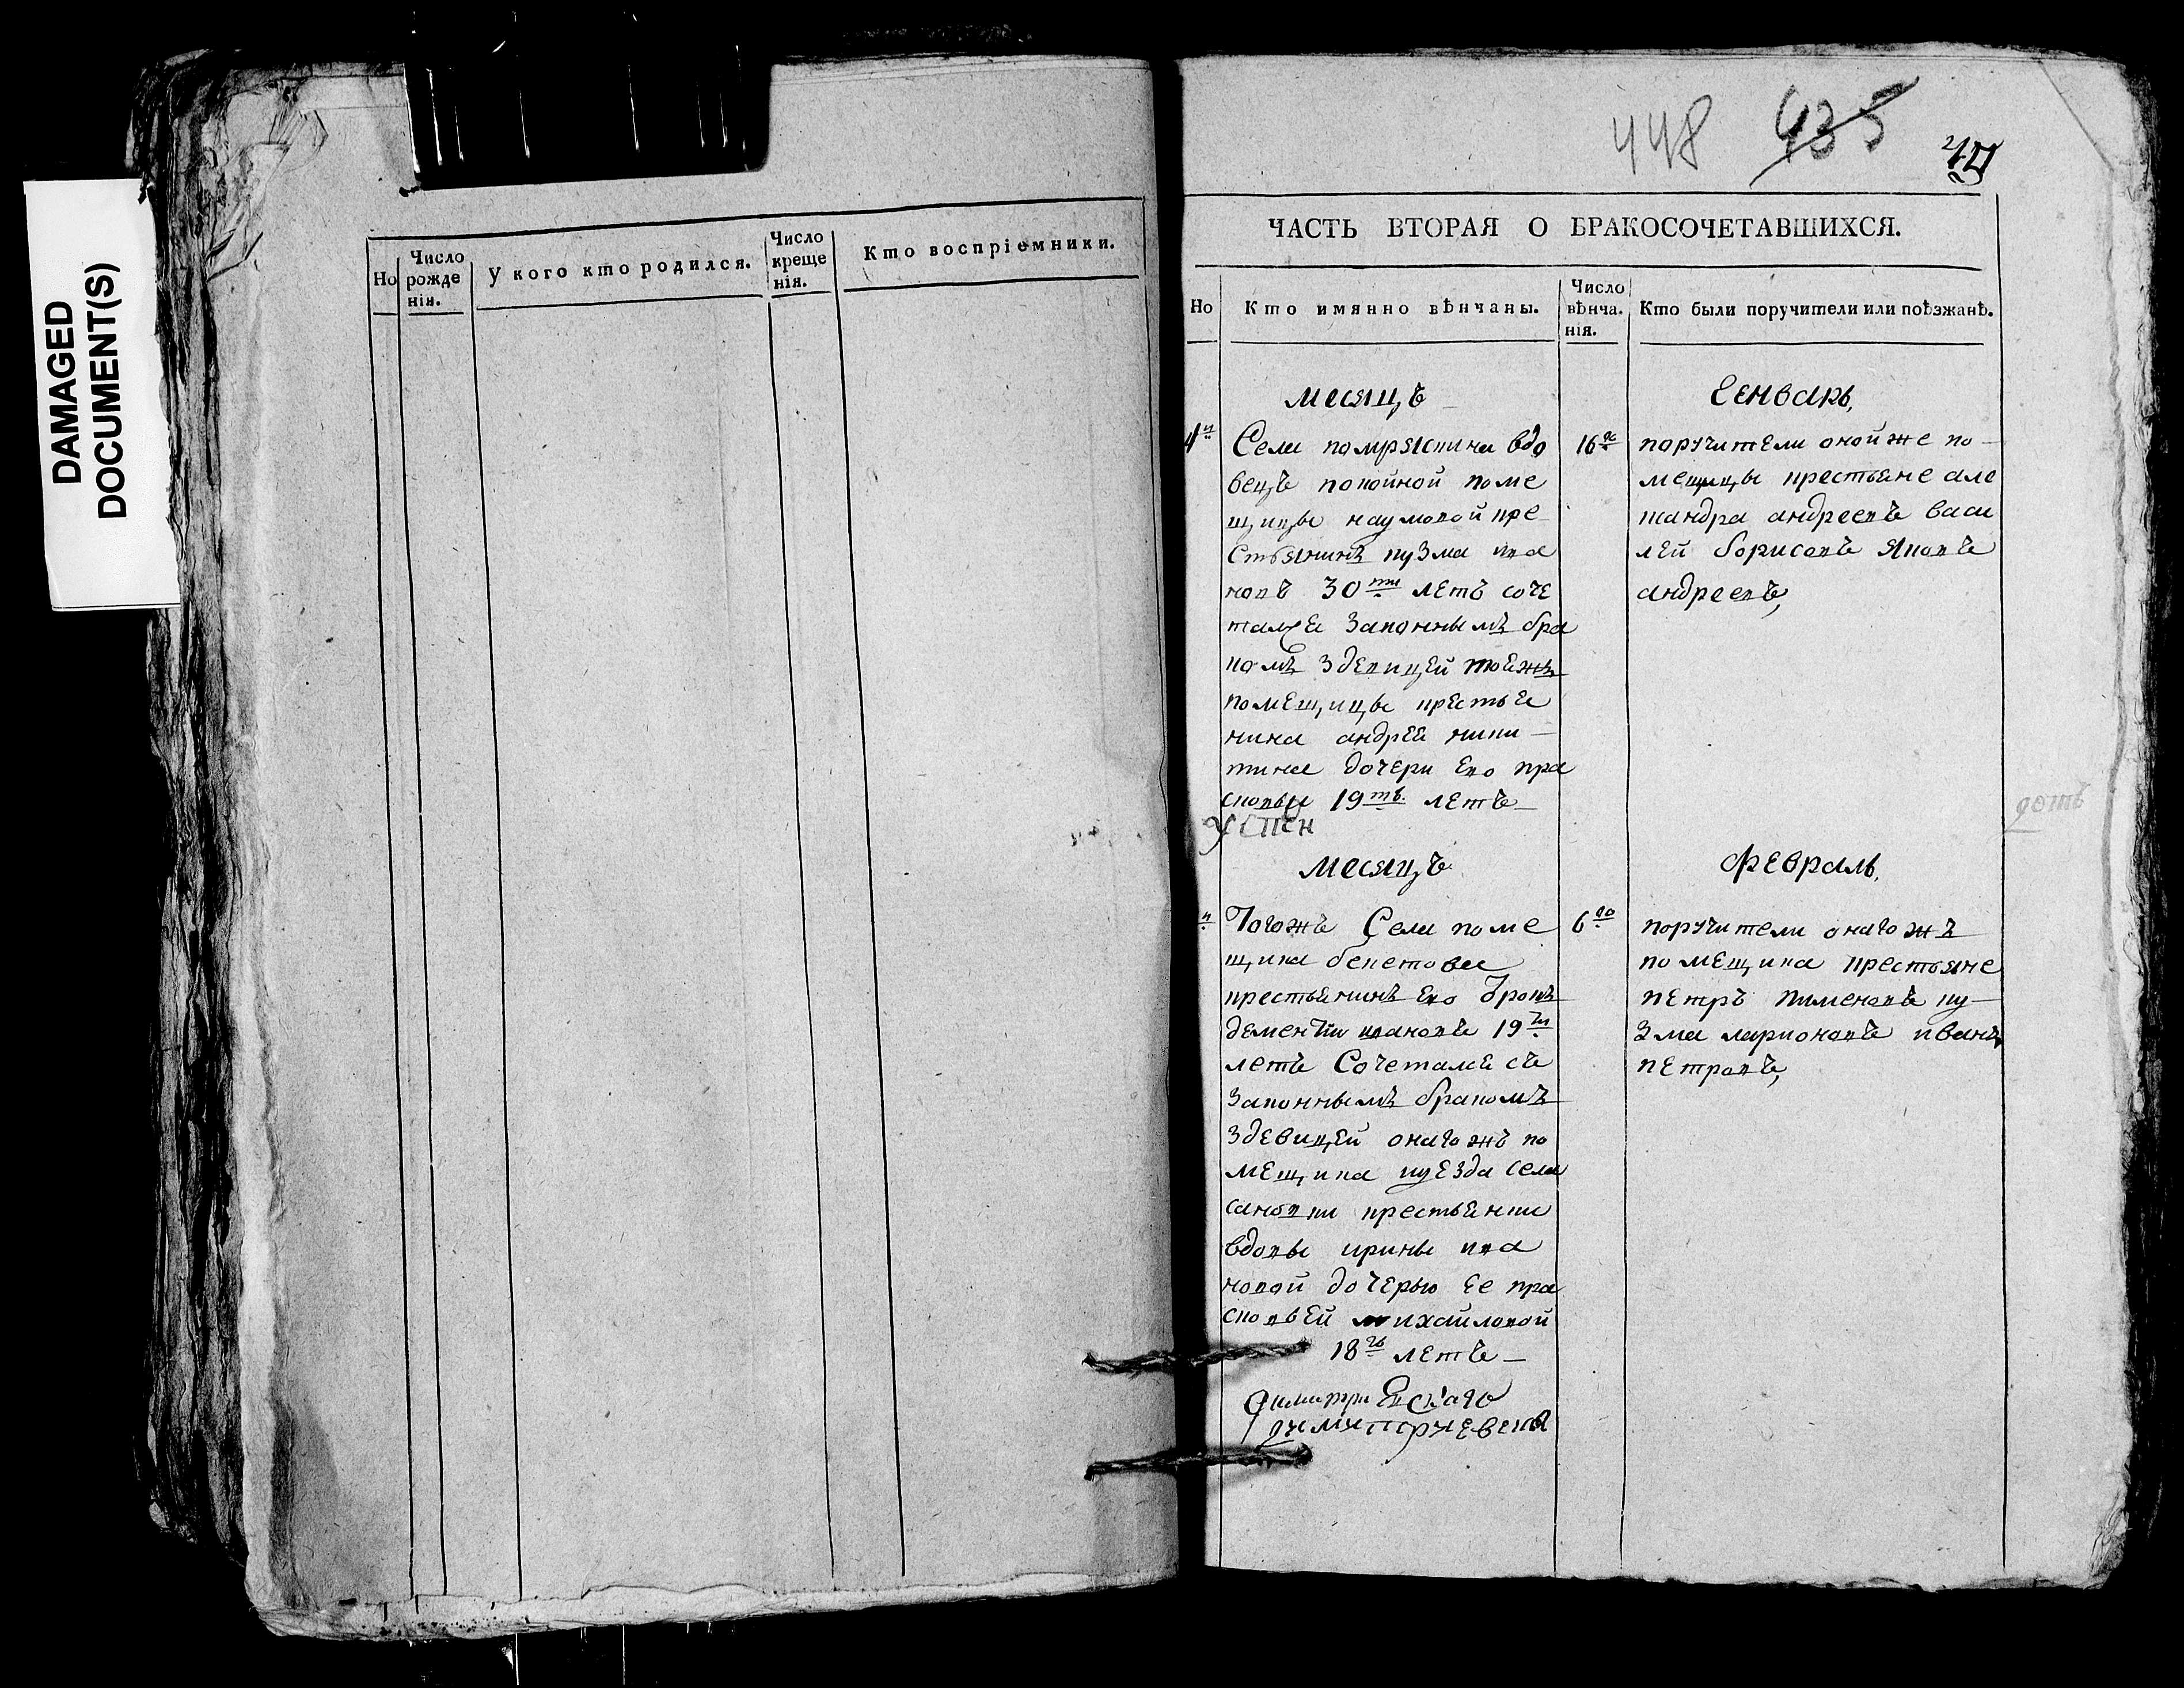 DAMAGED
DOCUMENT(S)
Но
Число рожденія.
У кого кто родился.
Число крещенія.
Кто воспріемники.
448 435
ЧАСТЬ ВТОРАЯ О БРАКОСОЧЕТАВШИХСЯ.
Но
Кто имянно вѣнчаны.
Число вѣнча. нія.
Кто были поручители или поѣзжанѣ.
месяцъ
Генварь,
Села вдо
вецъ покойной поме
щицы наумовой кре
стьянинъ кузма ива
новъ 30ти летъ соче
талсе законнымъ бра
комъ здевицей тоежъ
помещицы крестье
нина андрея ники
тина дочери ево пра
сковьи 19тъ. летъ
16го
поручители оной же по
мещицы крестьяне але
андреевъ васи
лей борисовъ яковъ
андреевъ,
месяцъ
февраль,
Тогожъ Села поме
щика бекетова
крестьенинъ ево
дементіи ивановъ 19ти
летъ Сочеталсе съ
законнымъ бракомъ
здевицей онагожъ по
мещика уезда села
крестьенки
вдовы ирины ива
новой дочерью ее пра
сковьей михайловой
18ть летъ
6го
поручители онагожъ
помещика крестьяне
петръ пименовъ ку
зма ларионовъ иванъ
петровъ,